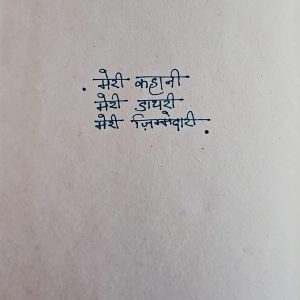 मेरी कहानी
मेरी डायरी
मेरी ज़िम्मेदारी